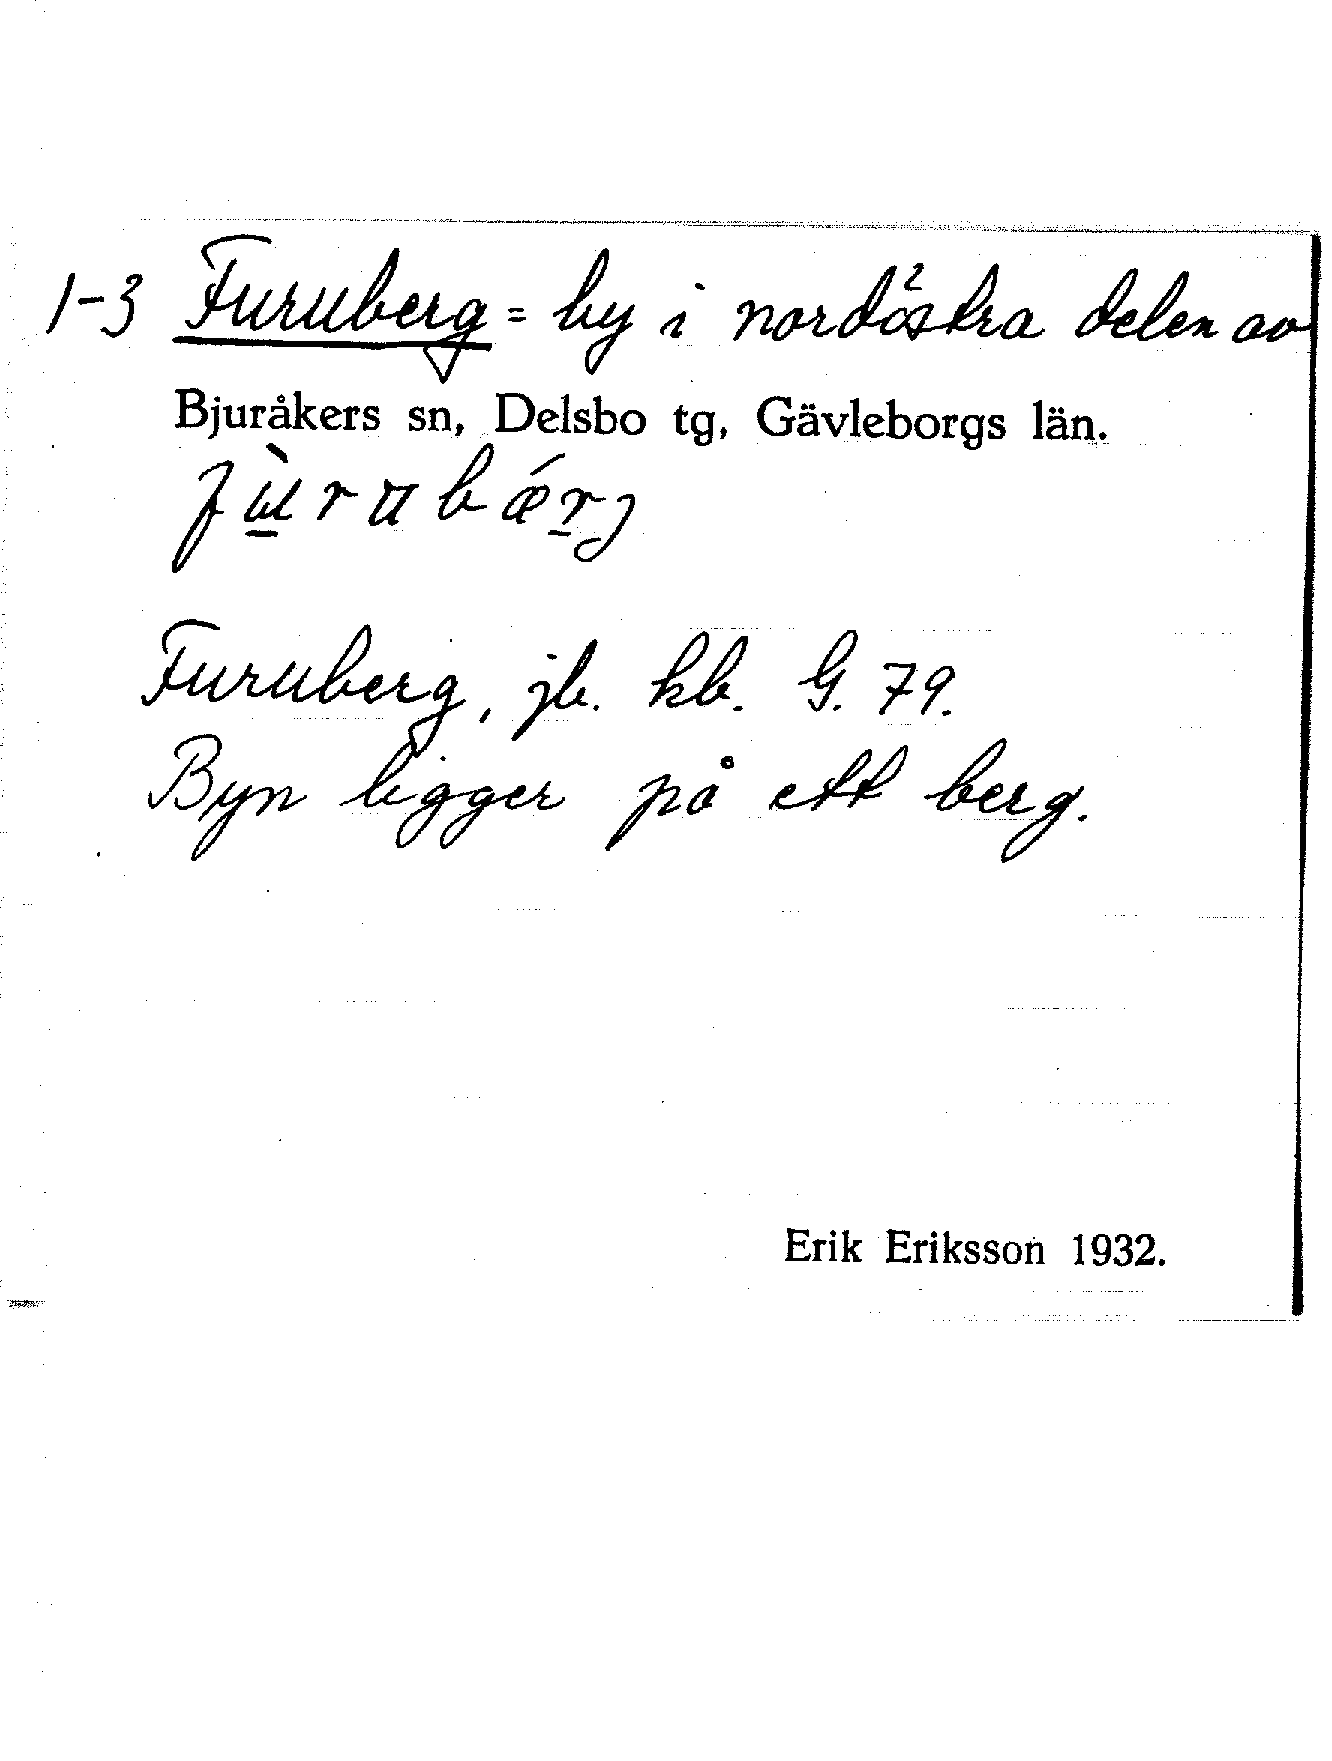 1-3 Furuberg = by i nordöstra delen av
Bjuråkers sn, Delsbo tg, Gävleborgs län.
fu̠̇̀rubǽr̠j
Furuberg, jb. kb. G. 79.
Byn ligger på ett berg.
Erik Eriksson 1932.